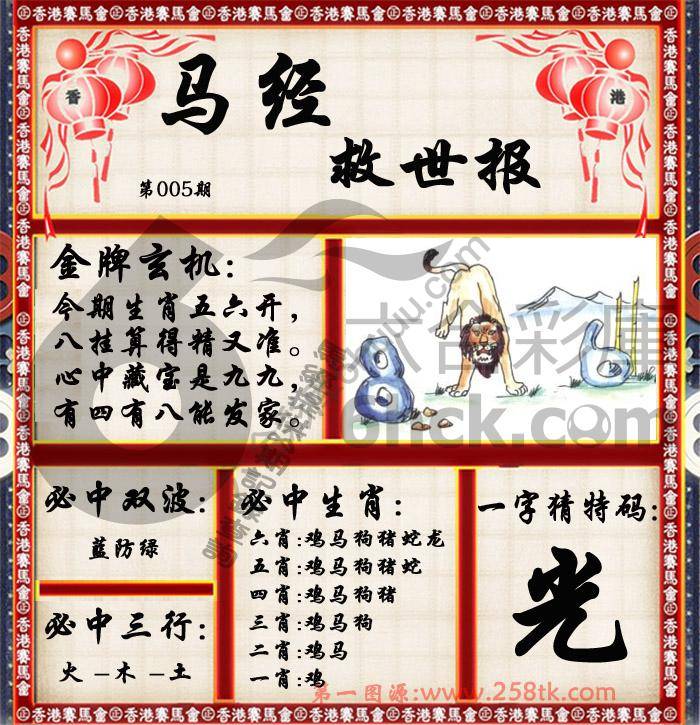 香港賽馬會
香 港
马经
救世报
第005期
金牌玄机:
今期生肖五六开,
八挂算得精又准。
心中藏宝是九九,
有四有八能发家。
8 6
六合彩庫
6hck.com
必中双波:
蓝防绿
必中三行:
火-木-土
必中生肖:
六肖:鸡马狗猪蛇龙
五肖:鸡马狗猪蛇
四肖:鸡马狗猪
三肖:鸡马狗
二肖:鸡马
一肖:鸡
一字猜特码:
光
第一图源:www.258tk.com